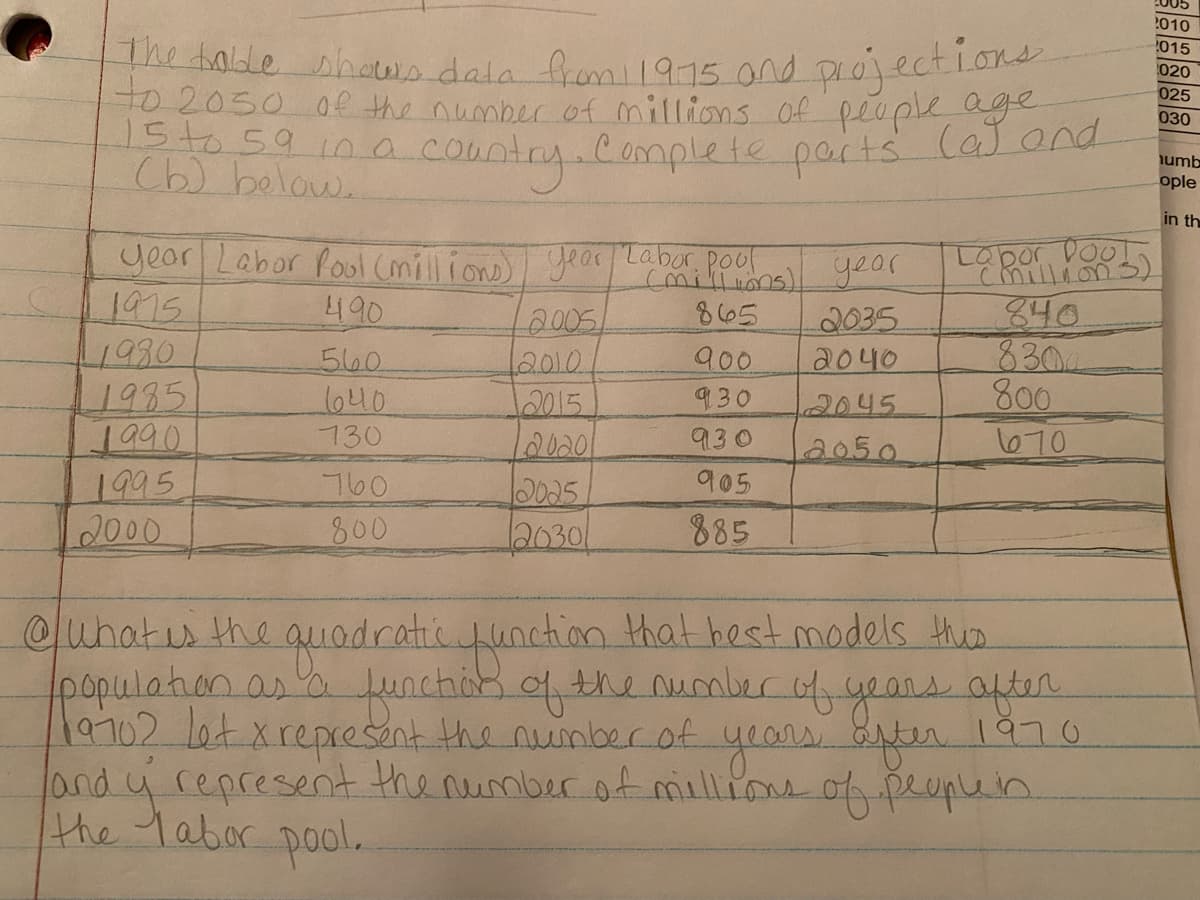 The table shows data from 1975 and projections
to 2050 of the number of millions of people age
15 to 59 in a country. Complete parts (a) and
(b) below.
year Labor Pool (millions) year Labor pool (millions) year Labor Pool (millions)
1975 490 2005 865 2035 840
1980 560 2010 900 2040 830
1985 640 2015 930 2045 800
1990 730 2020 930 2050 670
1995 760 2025 905
2000 800 2030 885
@ What is the quadratic function that best models this
population as a function of the number of years after
1970? Let x represent the number of years after 1970
and y represent the number of millions of people in
the labor pool.
2005
2010
2015
2020
2025
2030
numb
ople
in th